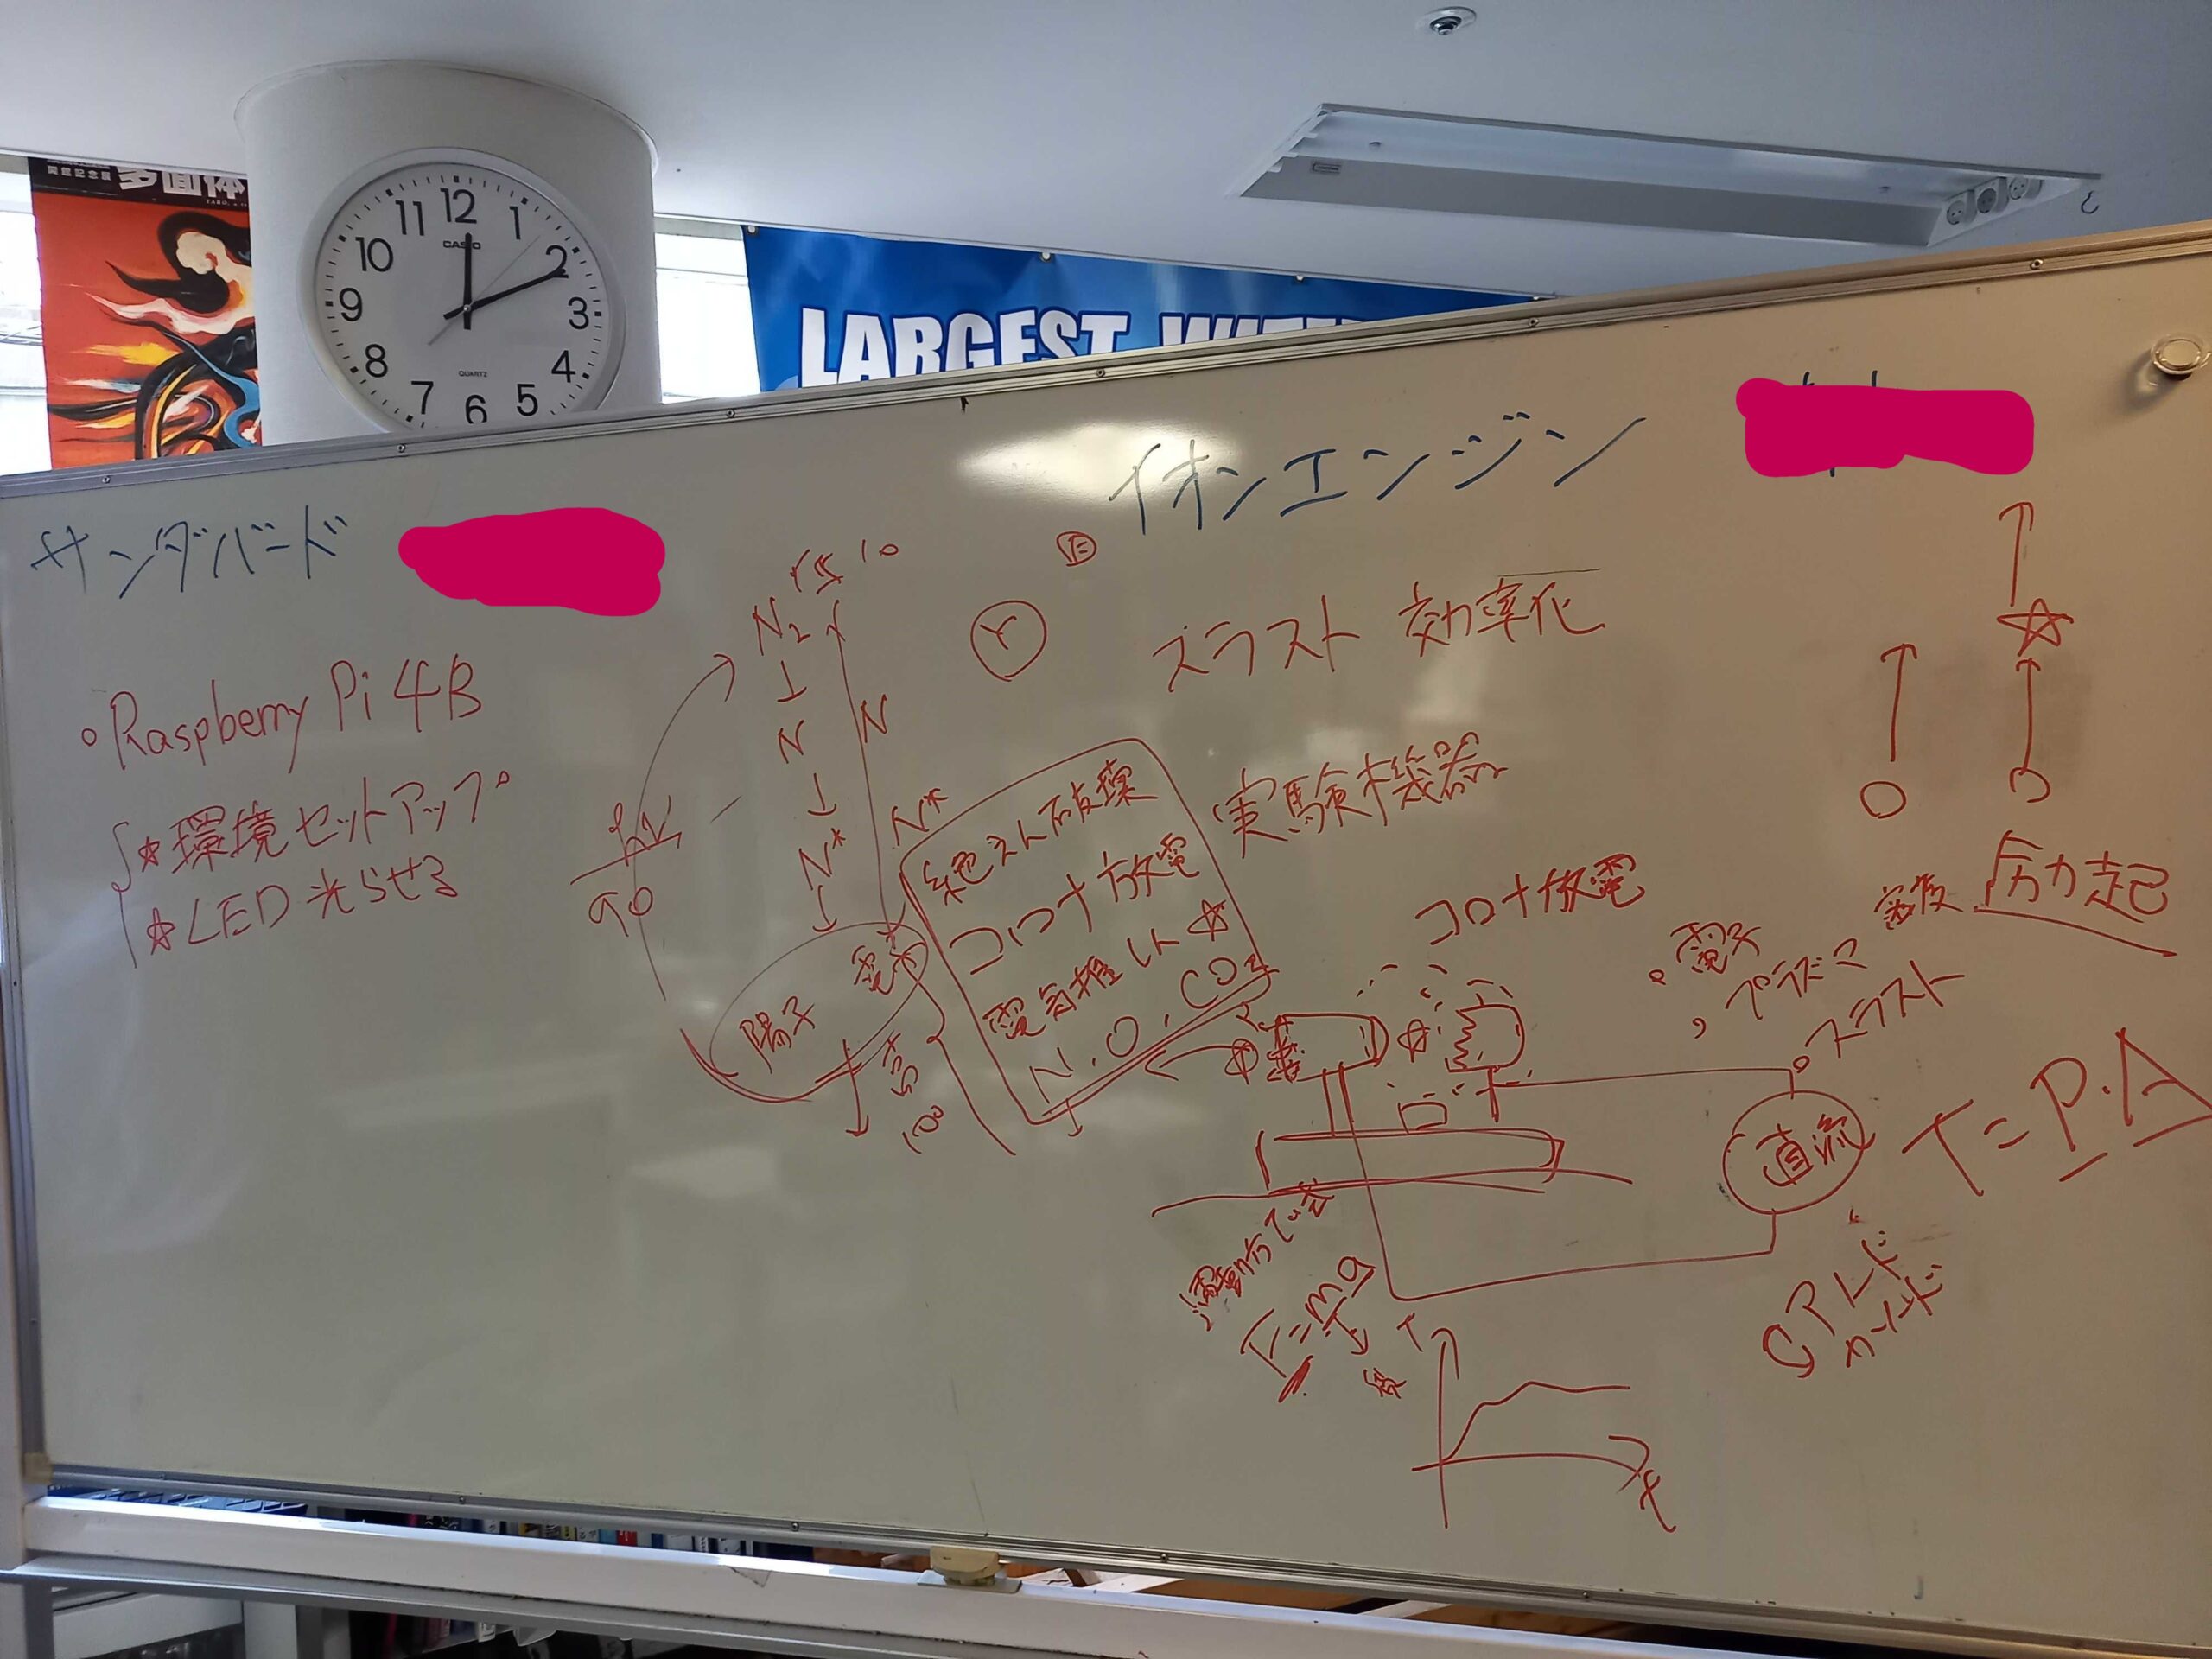 開館記念展
多面体
12
1
2
3
4
5
6
7
8
9
10
11
CASIO
QUARTZ
LARGEST
サンダバード
・Raspberry Pi 4B
☆環境セットアップ
☆LED 光らせる
イオンエンジン
スラスト 効率化
実験機器
N₂
↓
N
↓
N*
↓
N
N*
hν
90
陽子 電子
Y
E
10
100
絶えん破壊
コロナ放電
電気推し ☆
N.O.CO₂
コロナ放電
・電子 密度 励起
・プラズマ
・スラスト
直流
T=P.A
F=ma
T
t
カソード